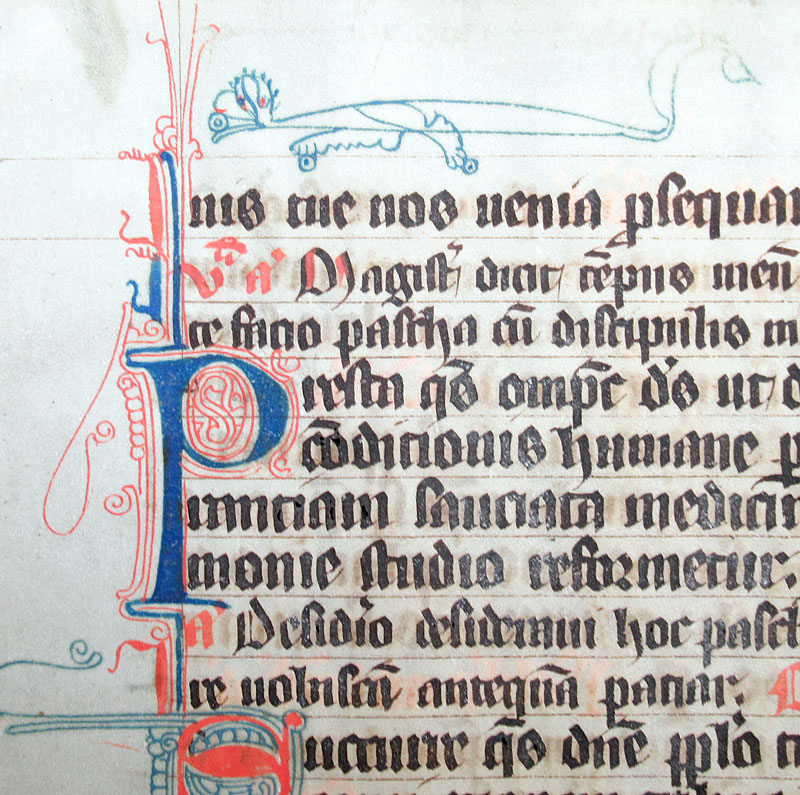 nis tue nos uenia p̱sequam
v̄ a᷑ Magist᷑ dicit tēpus meū
te facio pascha cū discipulis m
Presta qs̄ omp̄c ds̄ ut d
cōdicionis humane p
uranciam sauciata medicin
monie studio reformetur.
a᷑ Desidīo desideraui hoc pasch
re uobiscū antequā paciar.
Succurre qs̄ dnē ppl̄o t